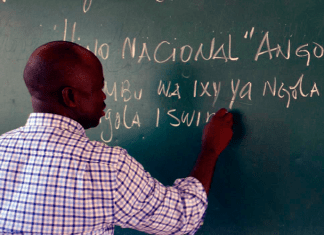 Hino Nacional "Ango
MBU WA IXY YA NGOLA
gola ISWI